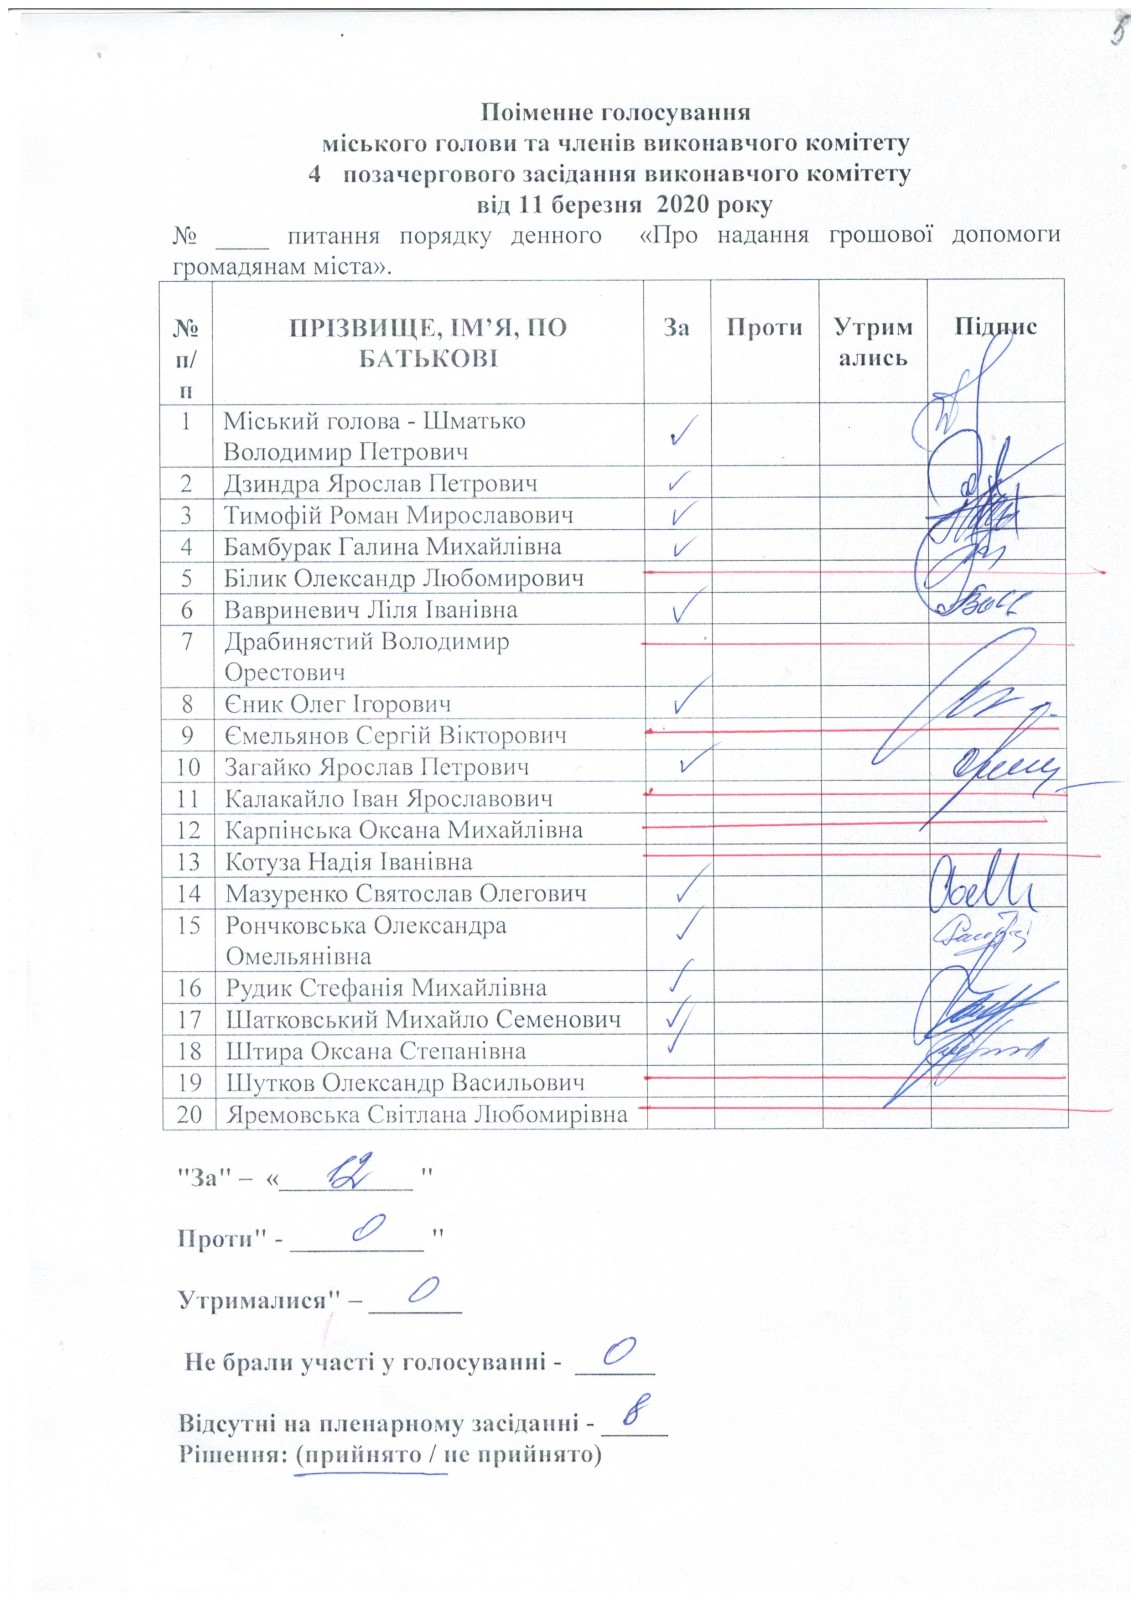 5
Поіменне голосування
міського голови та членів виконавчого комітету
4 позачергового засідання виконавчого комітету
від 11 березня 2020 року
№ ____ питання порядку денного «Про надання грошової допомоги
громадянам міста».
№ п/п ПРІЗВИЩЕ, ІМ’Я, ПО БАТЬКОВІ За Проти Утримались Підпис
1 Міський голова - Шматько
Володимир Петрович ✓
2 Дзиндра Ярослав Петрович ✓
3 Тимофій Роман Мирославович ✓
4 Бамбурак Галина Михайлівна ✓
5 Білик Олександр Любомирович
6 Вавриневич Ліля Іванівна ✓
7 Драбинястий Володимир
Орестович
8 Єник Олег Ігорович ✓
9 Ємельянов Сергій Вікторович
10 Загайко Ярослав Петрович ✓
11 Калакайло Іван Ярославович
12 Карпінська Оксана Михайлівна
13 Котуза Надія Іванівна
14 Мазуренко Святослав Олегович ✓
15 Рончковська Олександра
Омельянівна ✓
16 Рудик Стефанія Михайлівна ✓
17 Шатковський Михайло Семенович ✓
18 Штира Оксана Степанівна ✓
19 Шутков Олександр Васильович
20 Яремовська Світлана Любомирівна
"За" – «____12____ "
Проти" - ____0____ "
Утрималися" – ____0____
Не брали участі у голосуванні - __0__
Відсутні на пленарному засіданні - __8__
Рішення: (прийнято / не прийнято)